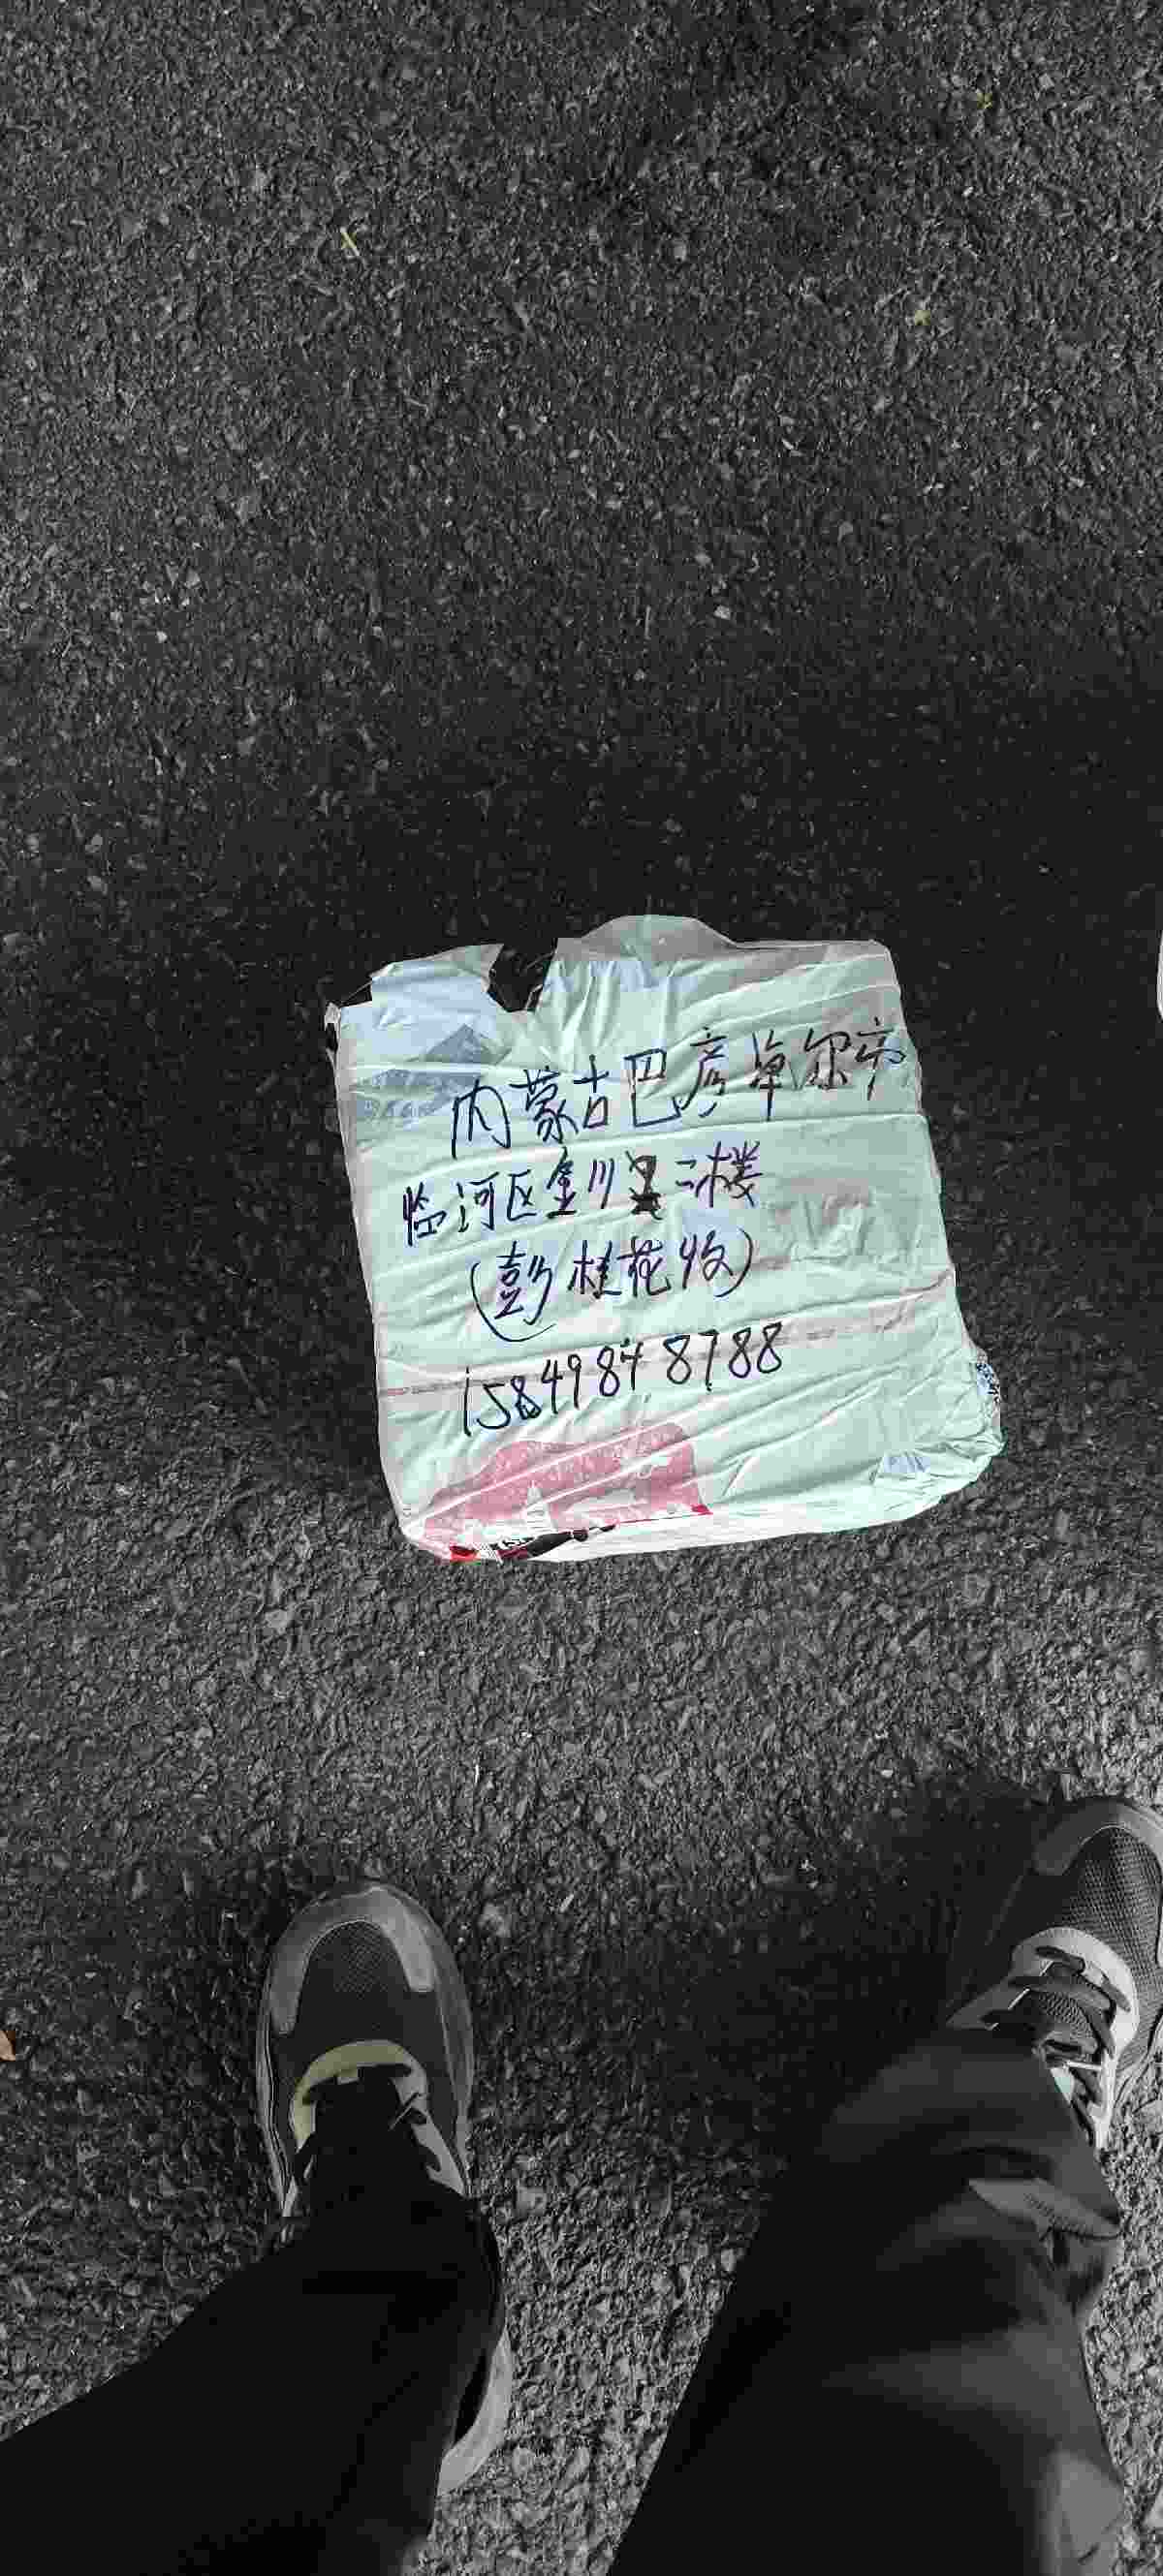 内蒙古巴彦淖尔市
临河区金川二楼
(彭桂花收)
15849848788